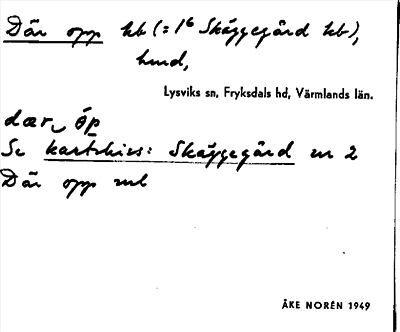 Där opp hb (: 1⁶ Skäggegård hb),
hmd,
Lysviks sn, Fryksdals hd, Värmlands län.
dær‿ öp
Se kartskiss: Skäggegård nr 2
Där opp
ÅKE NORÉN 1949